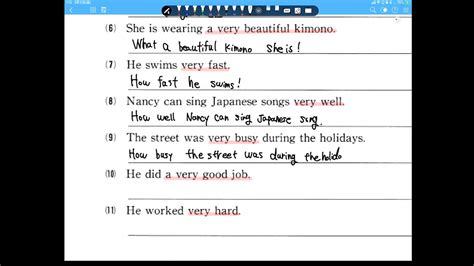 (6) She is wearing a very beautiful kimono.
What a beautiful kimono she is!
(7) He swims very fast.
How fast he swims!
(8) Nancy can sing Japanese songs very well.
How well Nancy can sing Japanese song.
(9) The street was very busy during the holidays.
How busy the street was during the holida
(10) He did a very good job.
(11) He worked very hard.